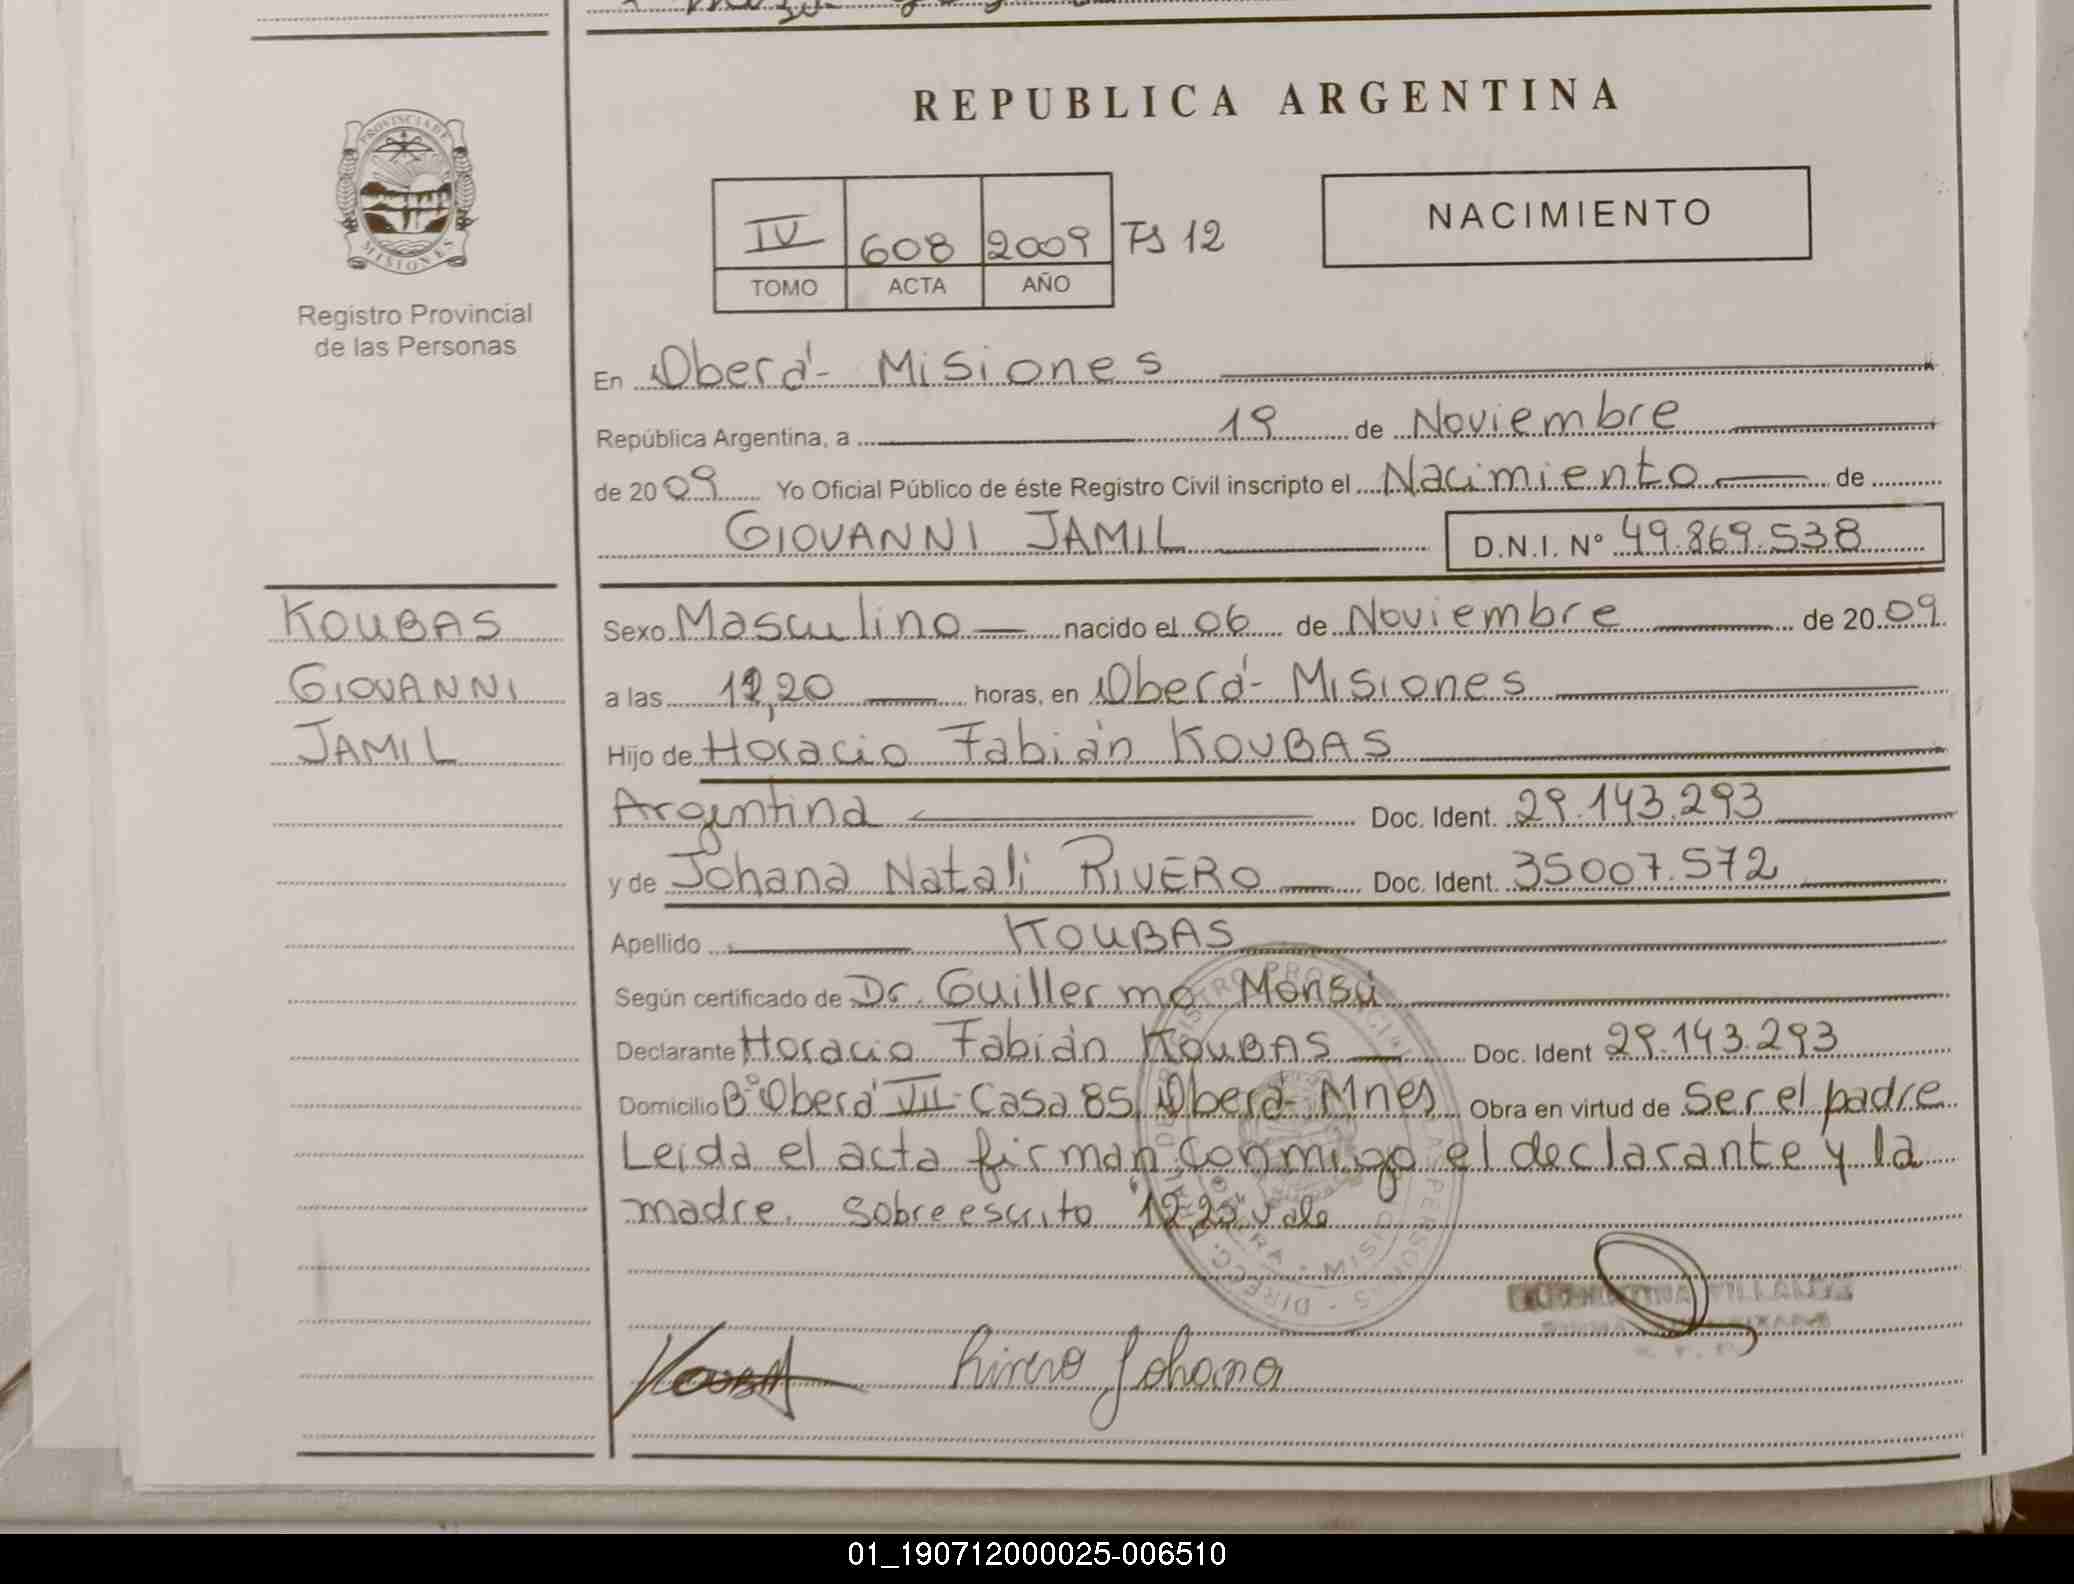 REPUBLICA ARGENTINA
PROVINCIA DE
MISIONES
Registro Provincial
de las Personas
IV 608 2009 Fs 12
TOMO ACTA AÑO
NACIMIENTO
En Oberá - Misiones
República Argentina, a 19 de Noviembre
de 2009 Yo Oficial Público de éste Registro Civil inscripto el Nacimiento de
GIOVANNI JAMIL D.N.I. Nº 49.869.538
KOUBAS
GIOVANNI
JAMIL
Sexo Masculino nacido el 06 de Noviembre de 2009
a las 12,20 horas, en Oberá - Misiones
Hijo de Horacio Fabián KOUBAS
Argentina Doc. Ident. 29.143.293
y de Johana Natali RIVERO Doc. Ident. 35007.572
Apellido KOUBAS
Según certificado de Dr. Guillermo
Declarante Horacio Fabián KOUBAS Doc. Ident 29.143.293
Domicilio Bº Oberá VII - Casa 85, Oberá - Mnes Obra en virtud de Ser el padre
Leída el acta firman conmigo el declarante y la
madre. Sobreescrito "12,20" vale
Rivero Johana
01_190712000025-006510